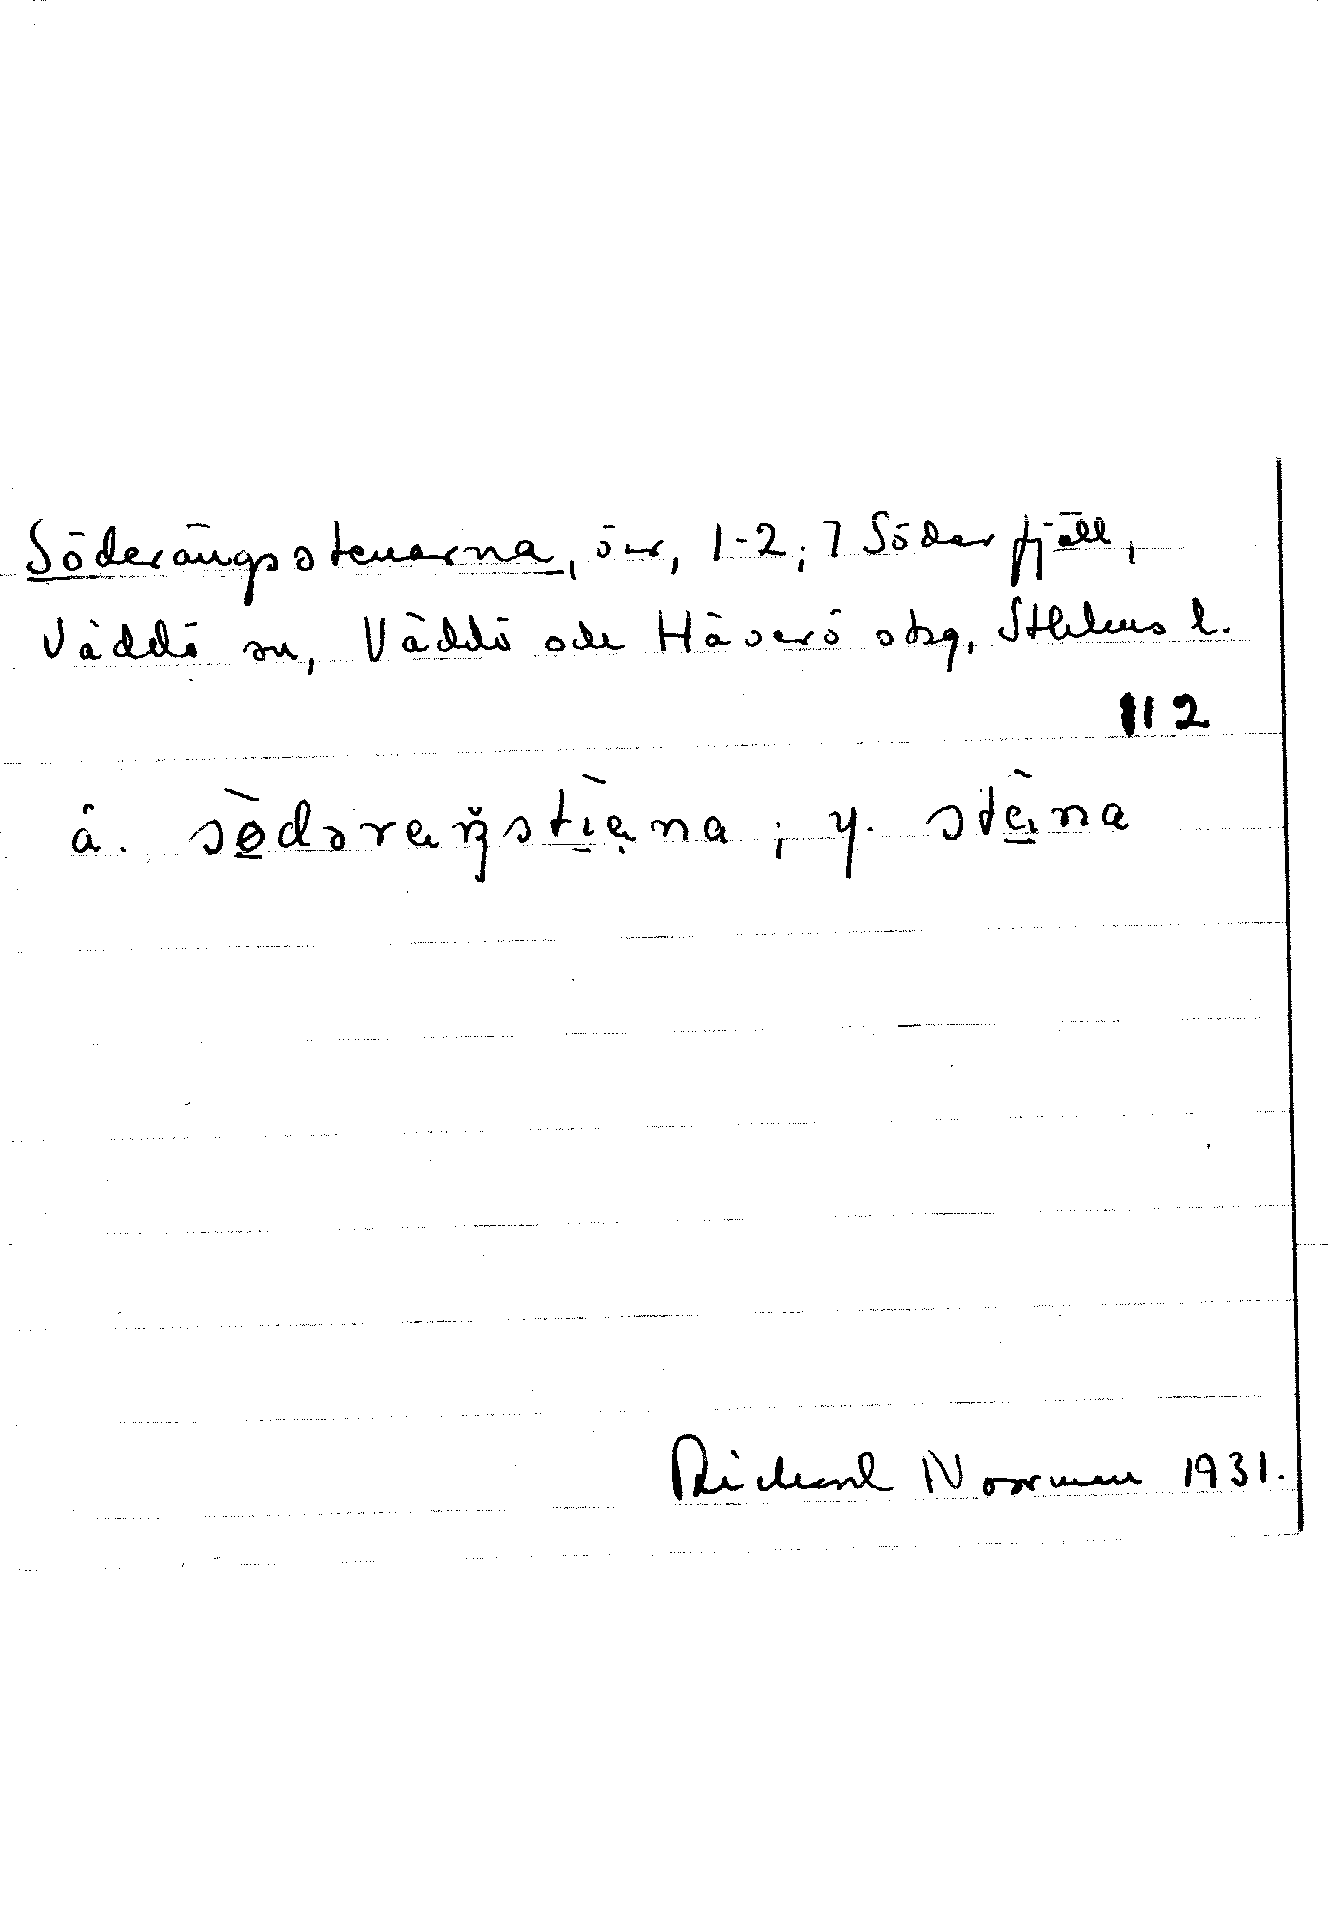 Söderängsstenarna, öar, 1-2; 7 Söderfjäll,
Väddö sn, Väddö och Häverö skg, Sthlms l.
112
ä. sø̀dəraŋstìe̯na ; y. stèna
Richard Norrman 1931.